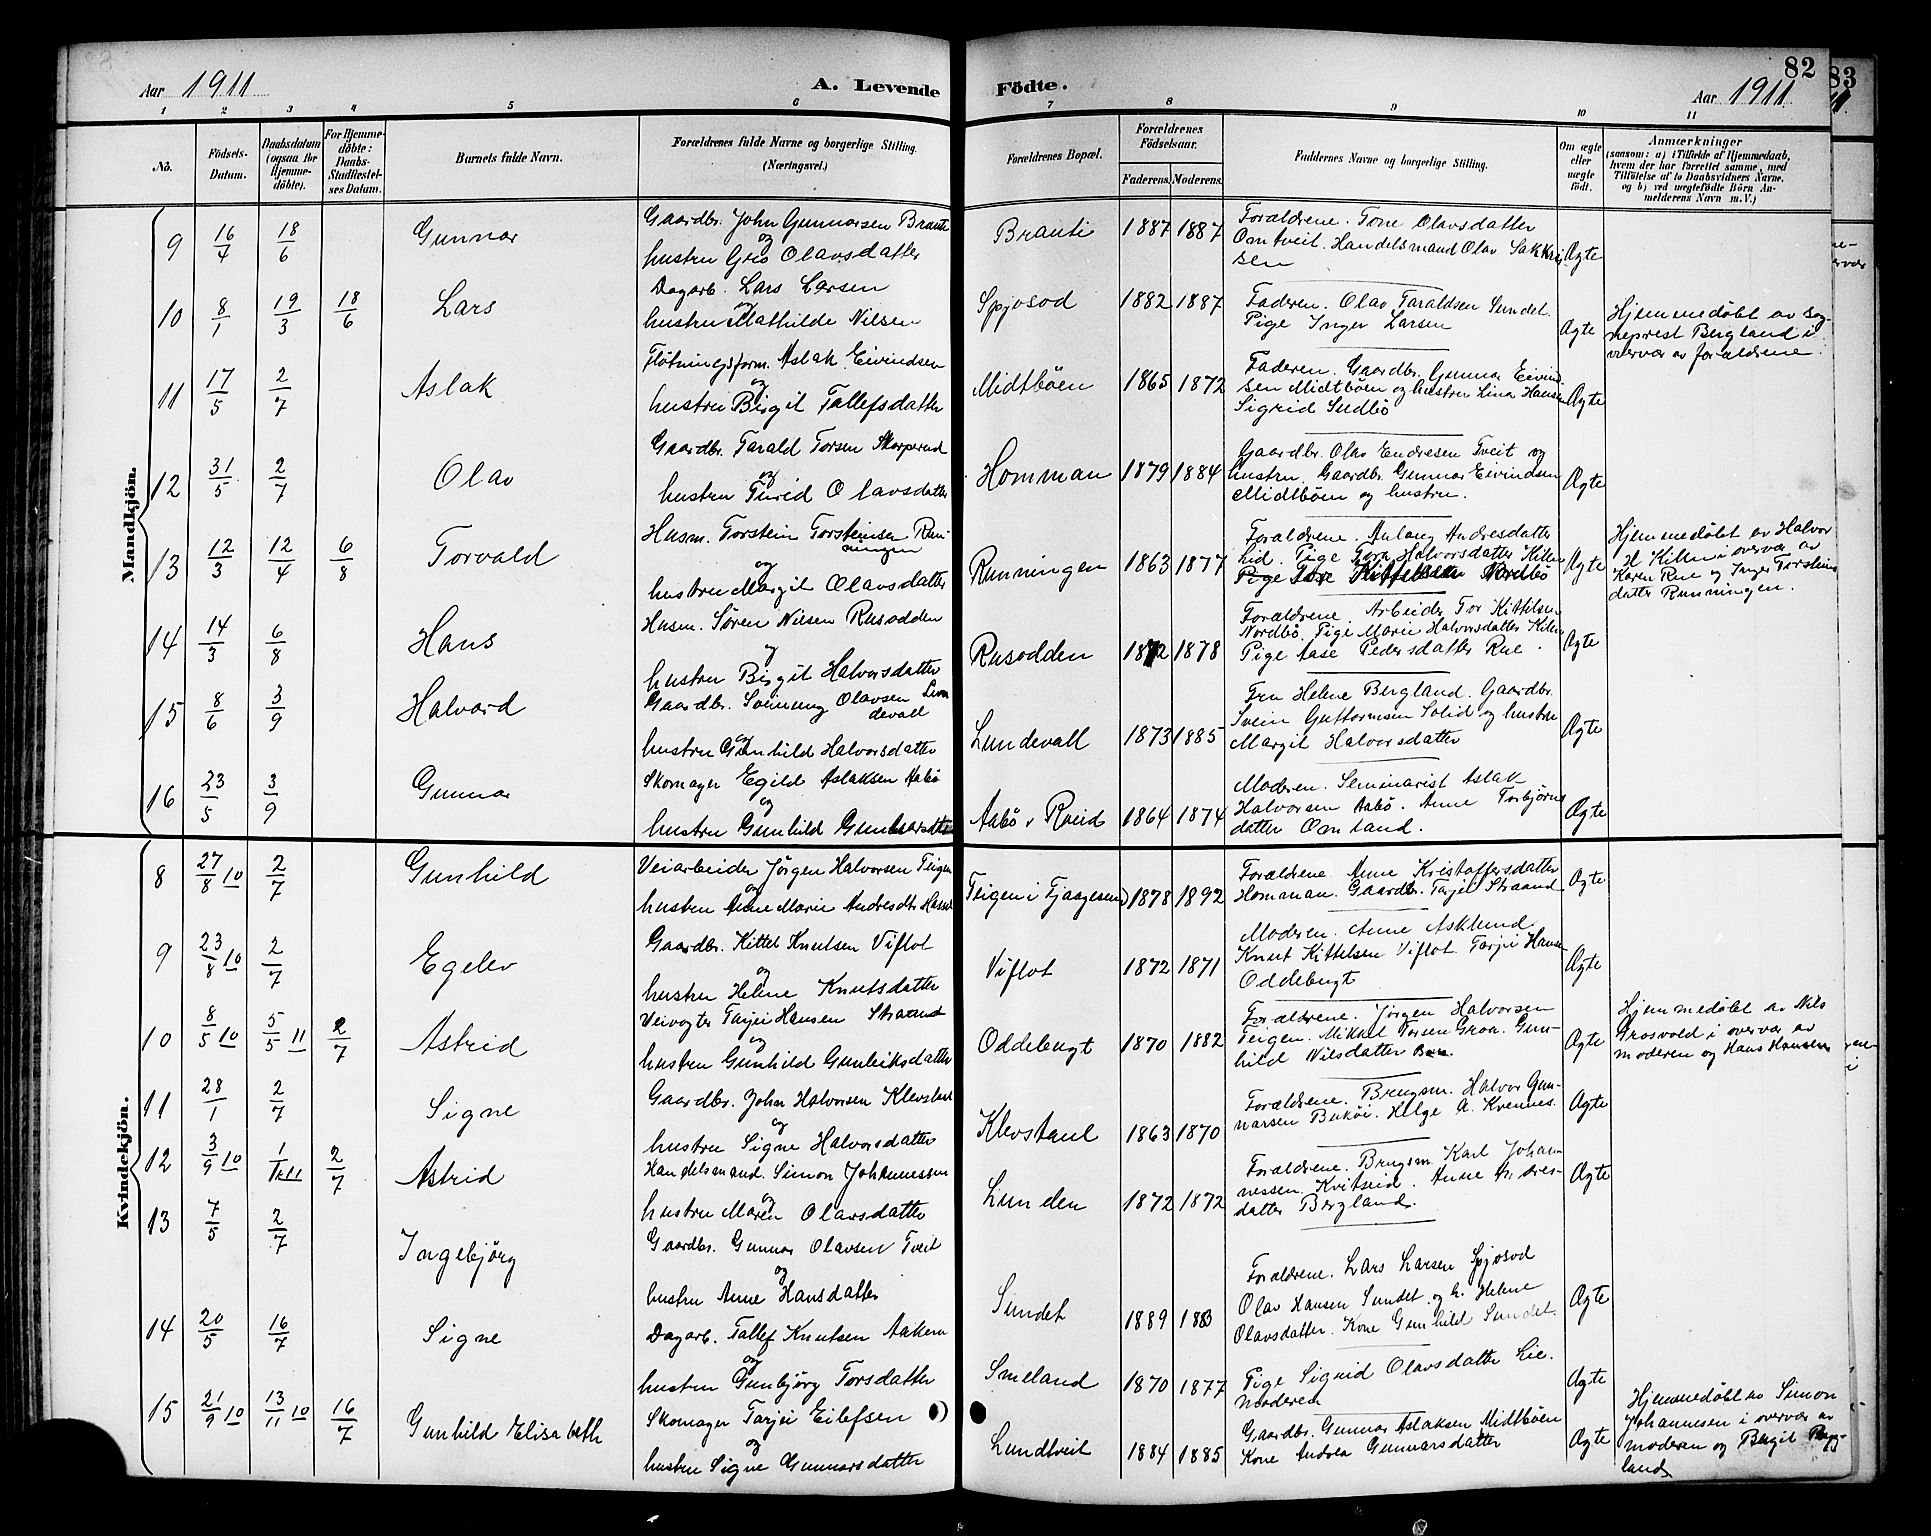 Aar 1911
A. Levende
Födte.
Aar 1911
82
83
1 2 3 4 5 6 7 8 9 10 11
No.
Födsels-Datum.
Daabsdatum (ogsaa for Hjemme-döbte).
For Hjemme-döbte: Daabs-Stadfæstelses Datum.
Barnets fulde Navn.
Forældrenes fulde Navne og borgerlige Stilling.
(Næringsvei.)
Forældrenes Bopæl.
Forældrenes Födselsaar.
Faderens. Moderens.
Faddernes Navne og borgerlige Stilling.
Om ægte eller uægte födt.
Anmærkninger
(saasom: a) i Tilfælde af Hjemmedaab,
hvem der har forrettet samme, med
Tilföielse af to Daabsvidners Navne,
og b) ved uægtefödte Börn An-
melderens Navn m. V.)
Mandkjön.
9 16/4 18/6 Gunnar
Gaardbr. John Gunnarsen Brauti
og
hustru Gro Olavsdatter
Brauti 1887 1887
Forældrene. Tone Olavsdatter
Omtveit. Handelsmand Olav Sakkri
sen
Ægte
10 8/1 19/3 18/6 Lars
Dagarb. Lars Larsen
og
hustru Mathilde Nilsen
Spjosod 1882 1887
Faderen. Olav Taraldsen Sundet
Pige Inger Larsen
Ægte
Hjemmedøbt av sog-
neprest Bergland i
overvær av forældrene.
11 17/5 2/7 Aslak
Fløtningsform. Aslak Eivindsen
og
hustru Birgit Tallefsdatter
Midtbøen 1865 1872
Faderen. Gaardbr. Gunnar Eivind-
sen Midtbøen og hustru Lina Hansen
Sigrid Sudbø
Ægte
12 31/5 2/7 Olav
Gaardbr. Tarald Torsen Skarperud
og
hustru Turid Olavsdatter
Homman 1879 1884
Gaardbr. Olav Endresen Tveit og
hustru. Gaardbr. Gunnar Eivindsen
Midtbøen og hustru.
Ægte
13 12/3 12/4 6/8 Torvald
Husm. Torstein Torsteinsen Run-
ningen
og
hustru Margit Olavsdatter
Runningen 1863 1877
Forældrene. Aslaug Andresdatter
Lid. Pige Tora Halvorsdatter Kilen
Pige Tor Kittelsen Nordbø
Ægte
Hjemmedøbt av Halvor
H Kilen i overvær av
Karen Rue og Inger Torsteins
datter Runningen.
14 14/3 6/8 Hans
Husm. Søren Nilsen Rusodden
og
hustru Birgit Halvorsdatter
Rusodden 1872 1878
Forældrene. Arbeider Tor Kittilsen
Nordbø. Pige Marie Halvorsdatter Kilen
Pige Aase Pedersdatter Rue.
Ægte
15 8/6 3/9 Halvard
Gaardbr. Sveinung Olavsen Lun
devall
og
hustru Gunhild Halvorsdatter
Lundevall 1873 1885
Fru Helene Bergland. Gaardbr.
Svein Guttormsen Solid og hustru
Margit Halvorsdatter
Ægte
16 23/5 3/9 Gunnar
Skomager Egild Aslaksen Aabø
og
hustru Gunhild Gunnarsdtr
Aabø v Roeid 1864 1874
Moderen. Seminarist Aslak
Halvorsen Aabø. Anne Torbjørns
datter Omland.
Ægte
Kvindekjön.
8 27/8 10 2/7 Gunhild
Veiarbeider Jørgen Halvorsen Teigen
og
hustru Anne Marie Andresdtr.
Teigen i Tjaagesund 1878 1892
Forældrene. Anne Kristoffersdatter
Homman. Gaardb. Tarjei Straand
Ægte
9 23/8 10 2/7 Egelev
Gaardbr. Kittel Knutsen Viflot
og
hustru Helene Knutsdatter
Viflot 1872 1871
Moderen. Anne Asklund
Knut Kittelsen Viflot. Tarjei Hansen
Oddebugt
Ægte
10 8/5 10 5/5 11 2/7 Astrid
Veivogter Tarjei Hansen Straand
og
hustru Gunhild Gunleiksdatter
Oddebugt 1870 1882
Forældrene. Jørgen Halvorsen
Teigen. Mikkel Torsen Graa. Gun-
hild Nilsdatter
Ægte
Hjemmedøbt av Nils
Grasvold i overvær av
moderen og Hans Hansen
11 28/1 2/7 Signe
Gaardbr. John Halvorsen Klevstaul
og
hustru Signe Halvorsdatter
Klevstaul 1863 1870
Forældrene. Brugsm. Halvor Gun-
narsen Bukøi. Helge A. Kvennes.
Ægte
12 3/9 10 1/1 11 2/7 Astrid
Handelsmand. Simon Johannessen
og
hustru Maren Olavsdatter
Lunden 1872 1872
Forældrene. Brugsm Karl Johan-
nessen Kvitseid. Anne Andres-
datter Bergland.
Ægte
13 7/5 2/7 Ingebjørg
Gaardbr. Gunnar Olavsen Tveit
og
hustru Anne Hansdatter
Sundet 1889 1883
Forældrene. Lars Larsen Spjosod
Olav Hansen Sundet og h. Helene
Olavsdatter. Kone Gunhild Sundet.
Ægte
14 20/5 16/7 Signe
Dagarb. Tallef Knutsen Aakern
og
hustru Gunbjørg Torsdatter
Smeland 1870 1877
Pige Sigrid Olavsdatter Lie.
Moderen
Ægte
15 21/9 10 13/11 10 16/7 Gunhild Elisabeth
Skomager Tarjei Eilefsen
og
hustru Signe Gunnarsdatter
Lundtveit 1884 1885
Gaardbr. Gunnar Aslaksen Midtbøen
Kone Andrea Gunnarsdatter
Ægte
Hjemmedøbt av Simon
Johannesen i overvær av
moderen og Birgit Bryg-
land